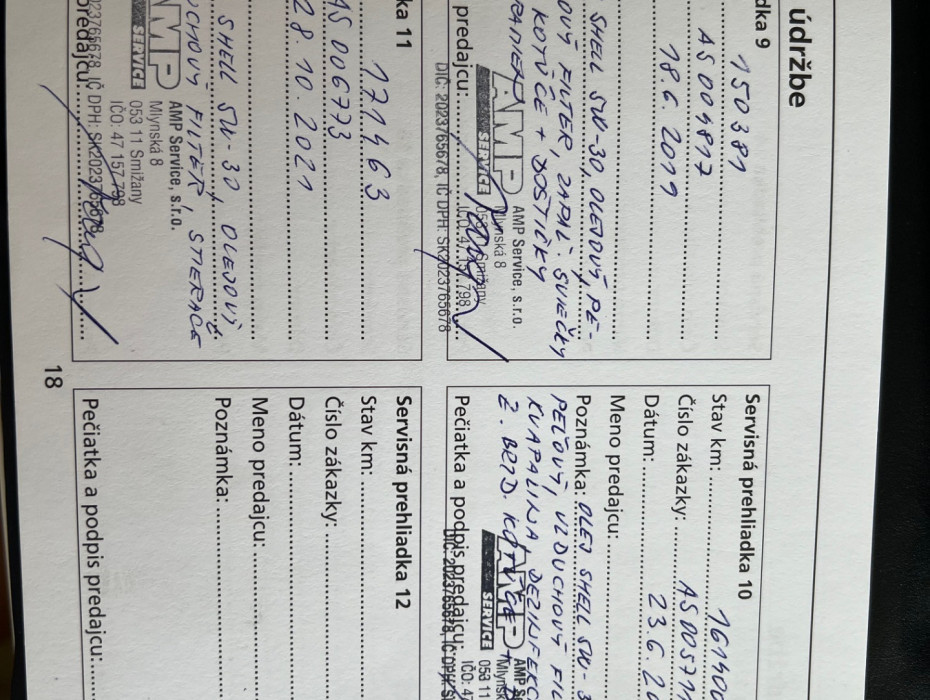 údržbe
dka 9
150381
AS004817
18.6.2019
SHELL 5W-30, OLEJOVÝ, PE-
OVÝ FILTER, ZAPAĽ. SVIEČKY
KOTÚČE + DOŠTIČKY
predajcu:
AMP
SERVICE
AMP Service, s.r.o.
Mlynská 8
053 11 Smižany
IČO: 47 157 798
DIČ: 2023765678, IČ DPH: SK2023765678
Servisná prehliadka 10
Stav km: 161400
Číslo zákazky: AS00571
Dátum: 23.6.20
Meno predajcu:
Poznámka: OLEJ SHELL 5W-3
PEĽOVÝ, VZDUCHOVÝ FIL
KVAPALINA DEZINFEKC
Z. BRZD. KOTÚČE +
Pečiatka a podpis predajcu:
AMP
SERVICE
AMP S
Mlynsk
053 11
IČO: 47
DIČ: 2023765678, IČ DPH: SK
ka 11
177463
AS006773
28.10.2021
SHELL 5W-30, OLEJOVÝ,
UCHOVÝ FILTER, STIERAČE
predajcu:
AMP
SERVICE
AMP Service, s.r.o.
Mlynská 8
053 11 Smižany
IČO: 47 157 798
023765678, IČ DPH: SK2023765678
Servisná prehliadka 12
Stav km:
Číslo zákazky:
Dátum:
Meno predajcu:
Poznámka:
Pečiatka a podpis predajcu:
18